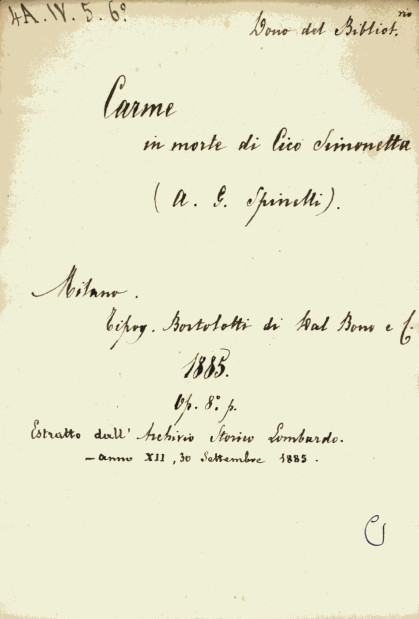 4A. IV. 5. 6º
Dono del Bibliot.rio
Carme
in morte di Cico Simonetta
( A. G. Spinelli ).
Milano.
Tipog. Bortolotti di Dal Bono e C.
1885.
Op. 8º p.
Estratto dall' Archivio Storico Lombardo.
— anno XII, 30 Settembre 1885.